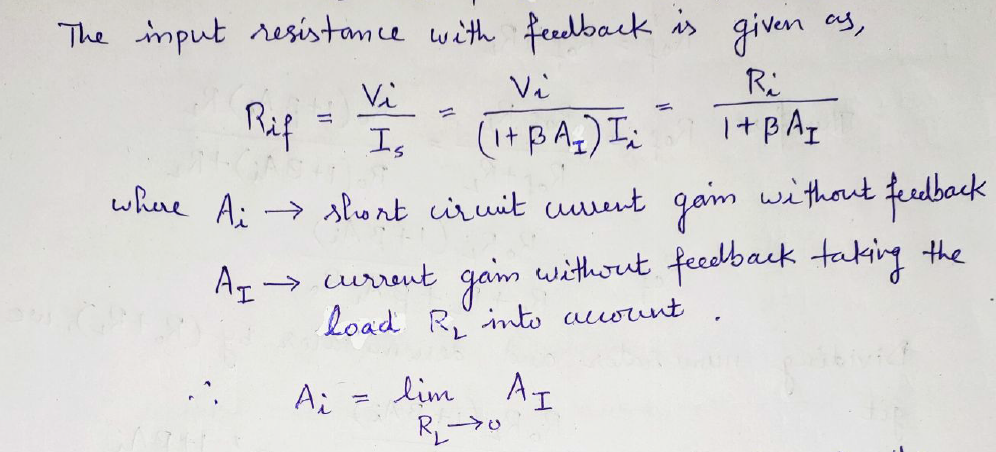 The input resistance with feedback is given as,
Rif = Vi / Is = Vi / (1 + β A_I) Ii = Ri / 1 + β A_I
where Ai → short circuit current gain without feedback
A_I → current gain without feedback taking the
load R_L into account .
∴ Ai = lim A_I
R_L → 0